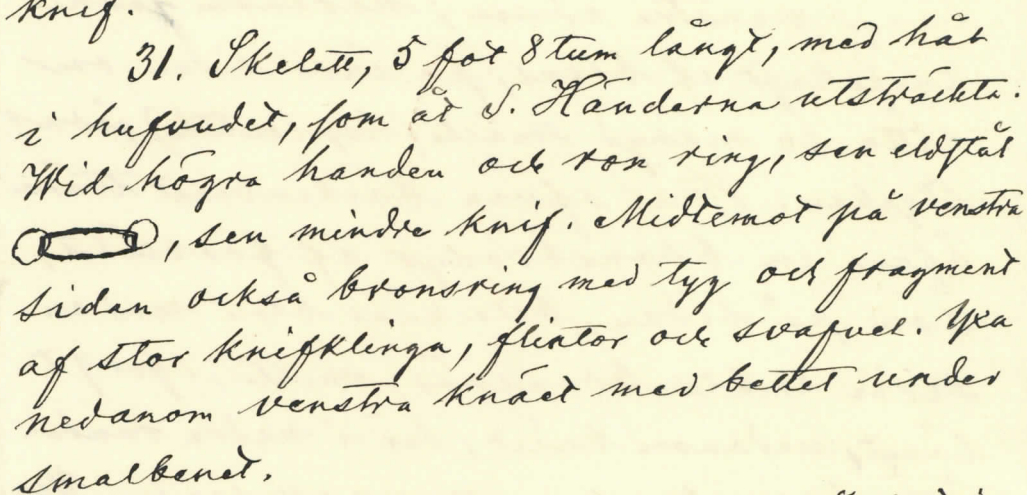 knif.
31. Skelett, 5 fot 8 tum långt, med hår
i hufvudet, som åt S. Händerna utsträckta.
Wid högra handen och ring, sen eldstål
, sen mindre knif. Midtemot på venstra
sidan också bronsring med tyg och fragment
af stor knifklinga, flintor och svafvel. Yxa
nedanom venstra knäet med bettet under
smalbenet.